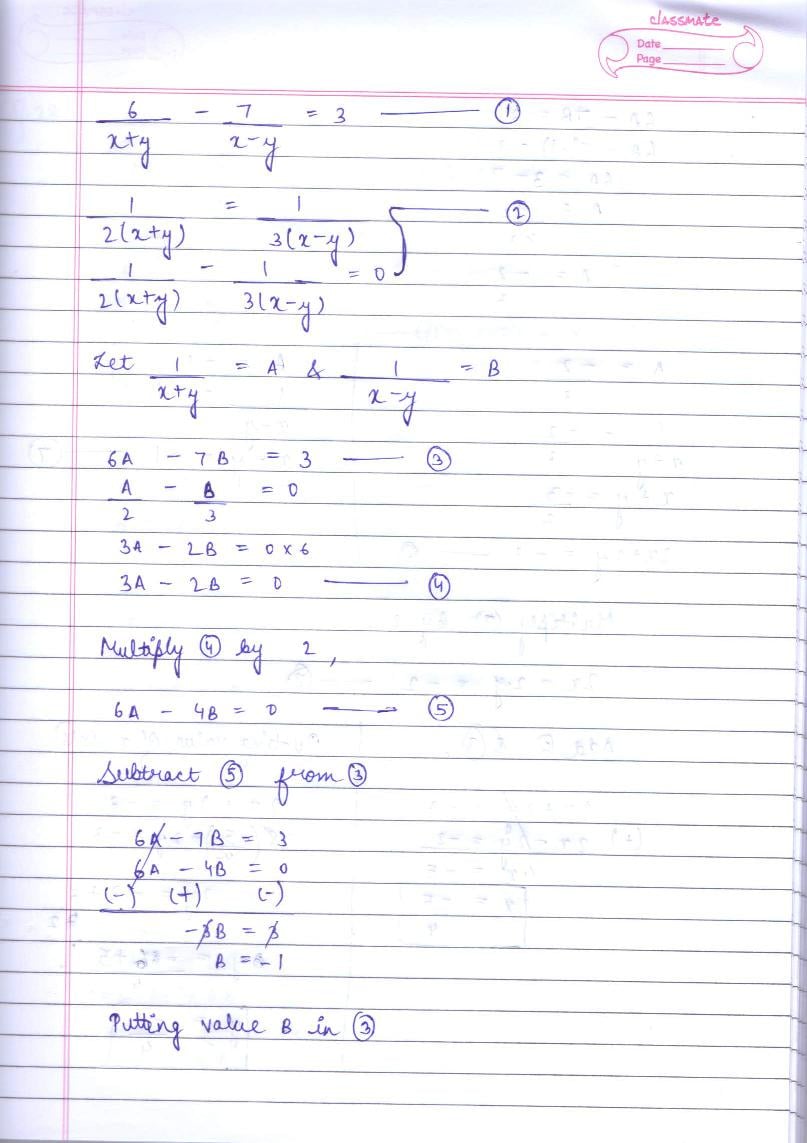 classmate
Date
Page
6/(x+y) - 7/(x-y) = 3 —— ①
1/(2(x+y)) = 1/(3(x-y)) —— ②
1/(2(x+y)) - 1/(3(x-y)) = 0
Let 1/(x+y) = A & 1/(x-y) = B
6A - 7B = 3 —— ③
A/2 - B/3 = 0
3A - 2B = 0 × 6
3A - 2B = 0 —— ④
Multiply ④ by 2,
6A - 4B = 0 —— ⑤
Subtract ⑤ from ③
6A - 7B = 3
6A - 4B = 0
(-) (+) (-)
-3B = 3
B = -1
Putting value B in ③